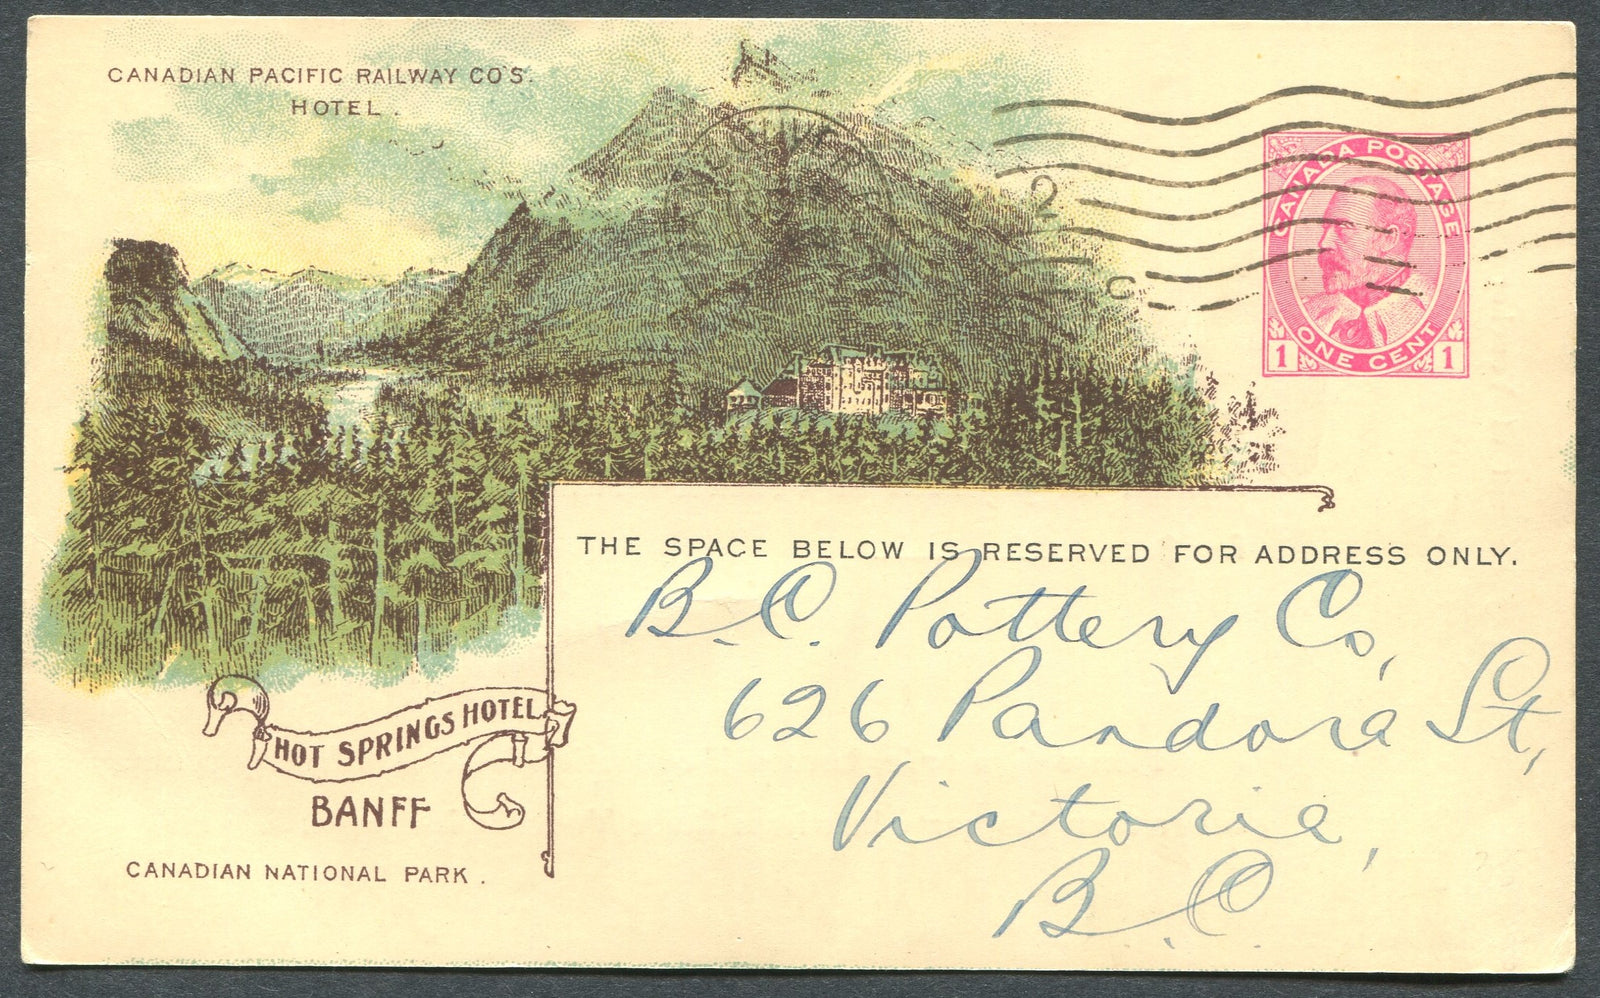 CANADIAN PACIFIC RAILWAY CO'S.
HOTEL.
CANADA POSTAGE
ONE CENT
1 1
2
C
THE SPACE BELOW IS RESERVED FOR ADDRESS ONLY.
B.C. Pottery Co,
626 Pandora St,
Victoria,
B.C.
HOT SPRINGS HOTEL
BANFF
CANADIAN NATIONAL PARK.